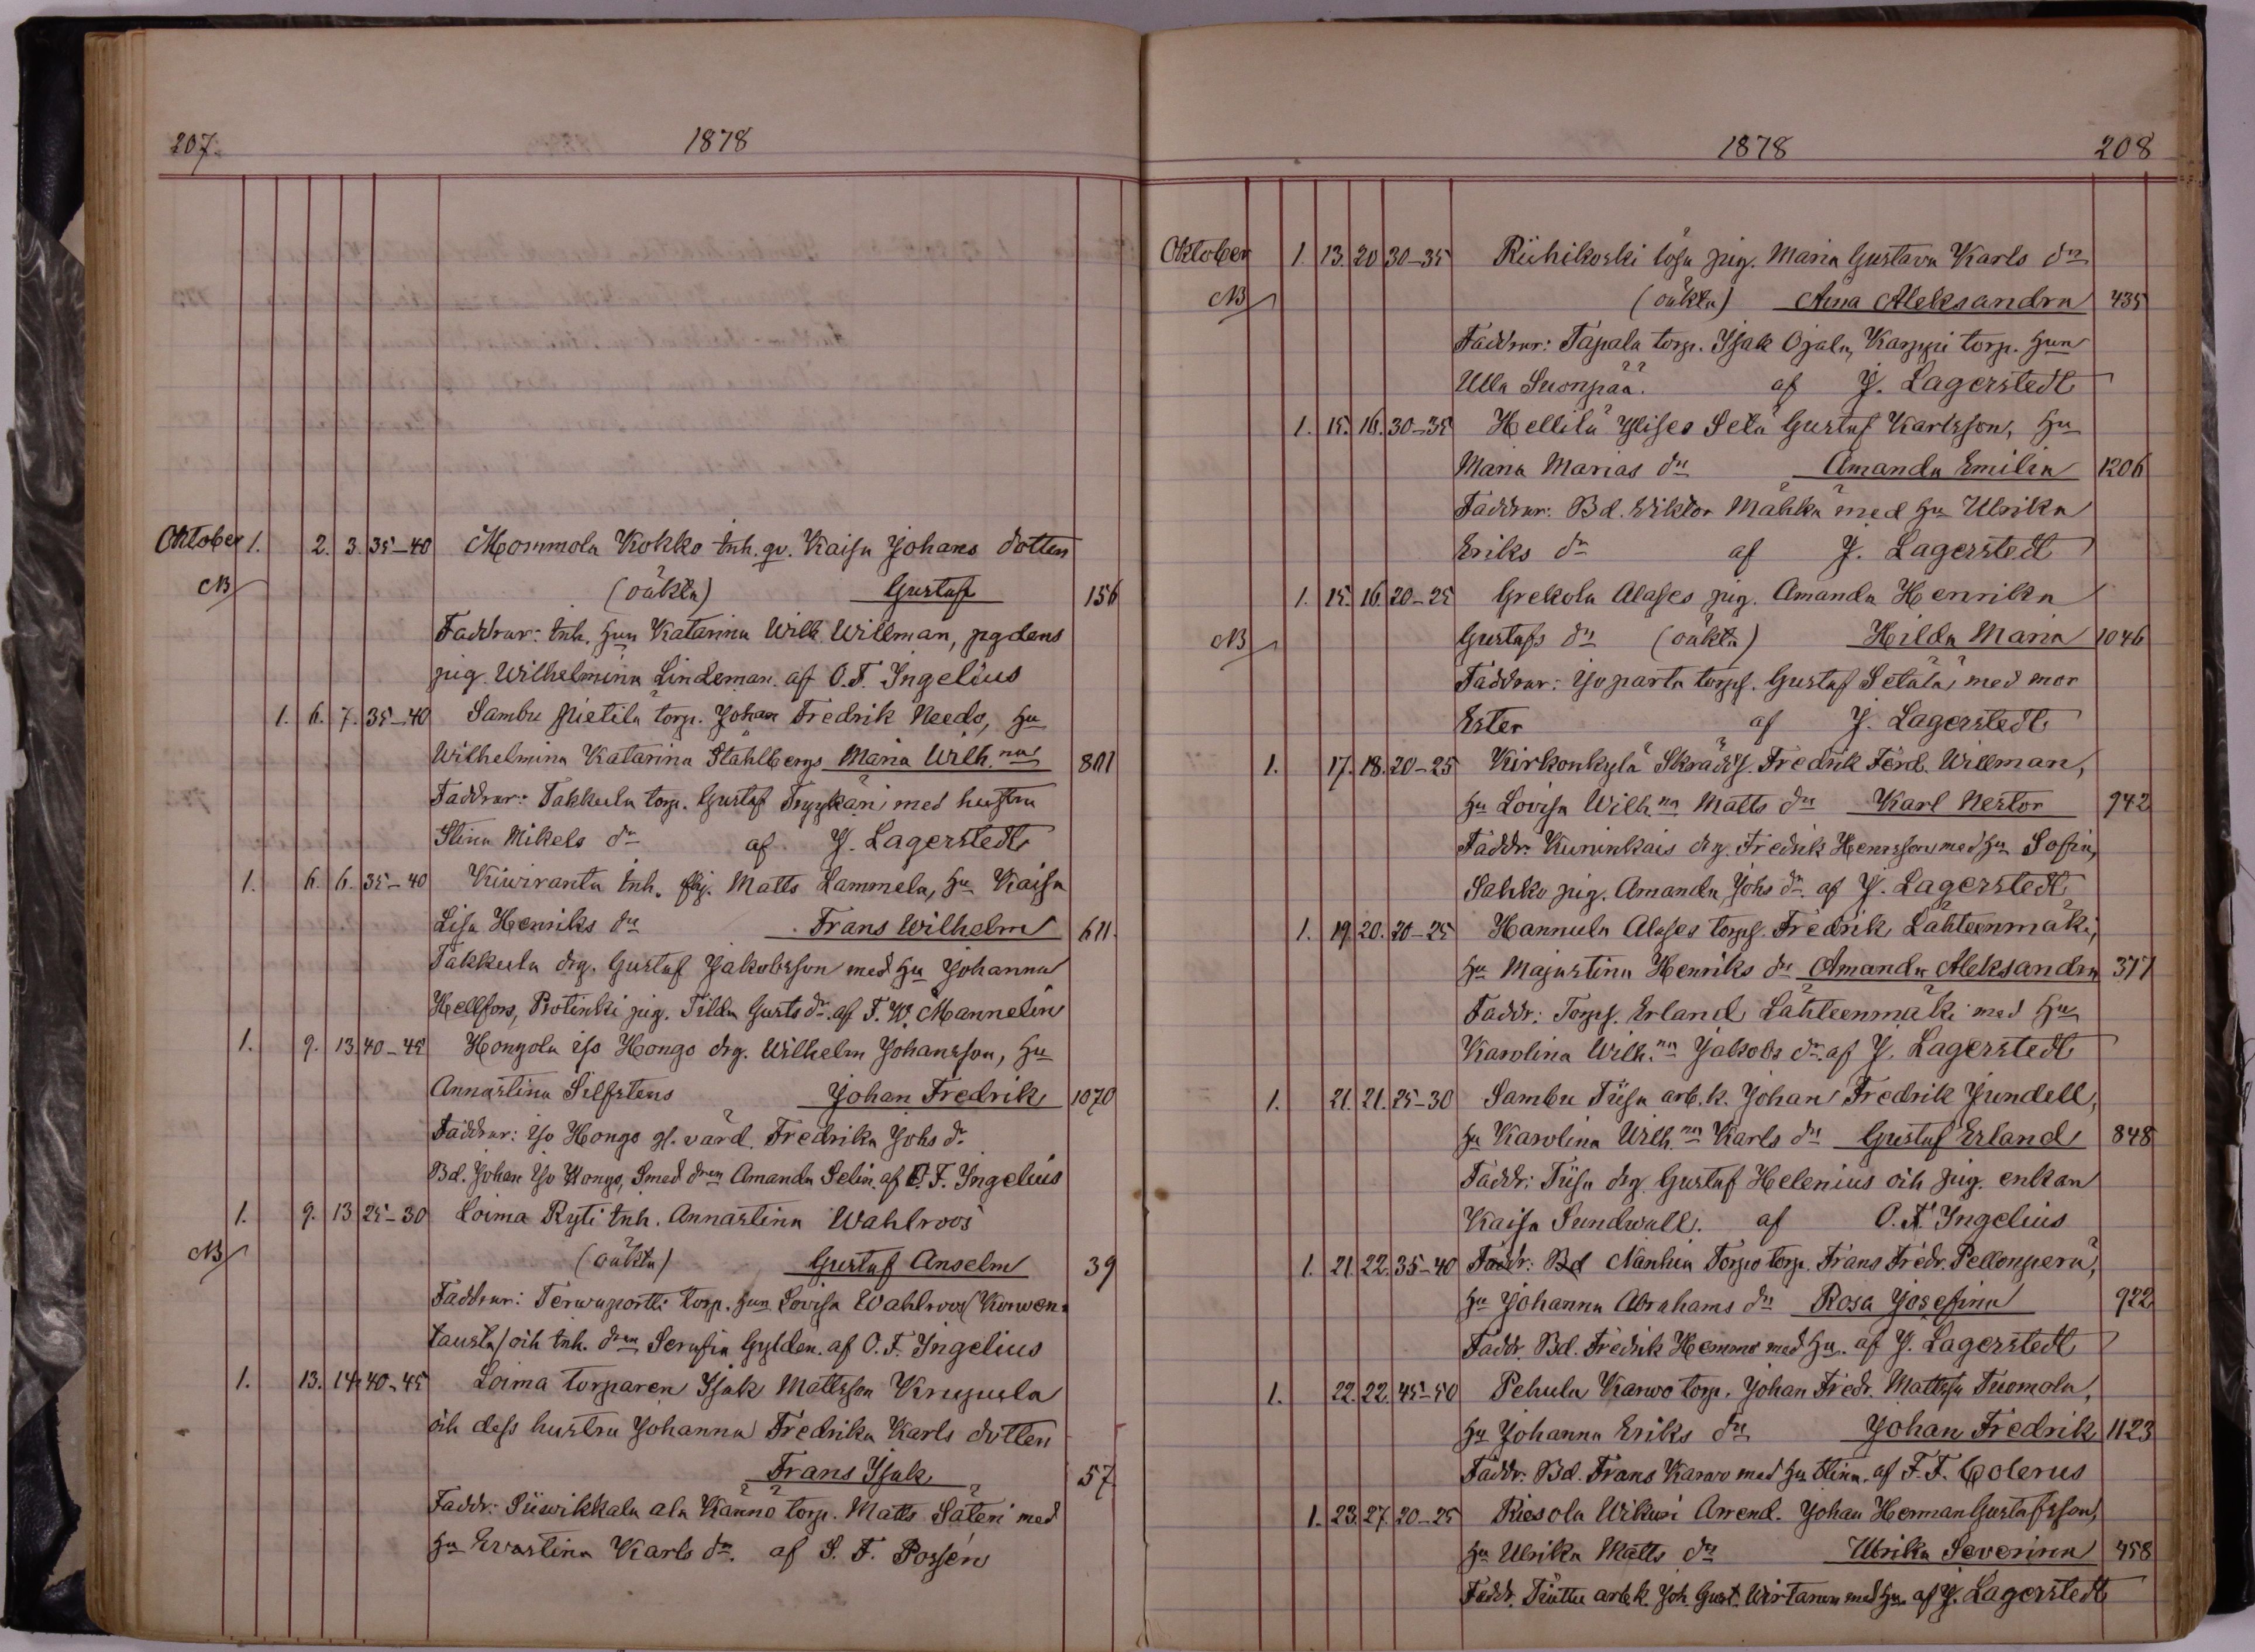 207. 1878
Oktober 1. 2. 3. 35-40 Mommola Kokko inh. qv. Kaisa Johans dotter
NB (oäkta) Gustaf 156
Faddrar: inh. hun Katarina Wilh. Willman, pgdens
pig. Wilhelmina Lindeman. af O.F. Ingelius
1. 6. 7. 35-40 Sambu Pietilä torp. Johan Fredrik Needo, hu
Wilhelmina Katarina Ståhlbergs Maria Wilh.na 801
Faddrar: Takkula torp. Gustaf Tryykäri med hustru
Stina Mikels dr af J. Lagerstedt
1. 6. 6. 35-40 Kiwiranta inh. Matts Lammela, hu Kaisa
Lisa Henriks dr Frans Wilhelm 611.
Takkula drg. Gustaf Jakobsson med hu Johanna
Hellfors, Protinki pig. Tilda Gusts dr. af F. W. Mannelin
1. 9. 13 40-45 Hongola iso Hongo drg. Wilhelm Johansson, hu
Annastina Silfstens Johan Fredrik 1070
Faddrar: Iso Hongo gl. värd. Fredrika Johs dr.
Bd. Johan Iso Hongo, Smed dren Amanda Selin. af O. F. Ingelius
1. 9. 13 25-30 Loima Ryti inh. Annastina Wahlroos
NB (oäkta) Gustaf Anselm 39
Faddrar: Terwaportti torp. hun Lovisa Wahlroos (Korwen-
tausta) och inh. dren Serafia Gylden. af O. F. Ingelius
1. 13. 14. 40-45 Loima torparen Isak Mattsson Krupula
och dess hustru Johanna Fredrika Karls dotter
Frans Isak 57
Faddr: Siiwikkala ala Känno torp. Matts Säteri med
hu Evastina Karls dr. af S. F. Possén
1878 208
Oktober 1. 13. 20 30-35 Riihikoski lösa pig. Maria Gustava Karls dr
NB (oäkta) Aina Aleksandra 435
Faddrar: Tapala torp. Isak Ojala, Karppi torp. hun
Ulla Suonpää. af J. Lagerstedt
1. 15. 16. 30-35 Hellilä Ylises Selä Gustaf Karlsson, hu
Maria Marias dr Amanda Emilia 1206
Faddrar: Bd. Wiktor Mähkä med hu Ulrika
Eriks dr af J. Lagerstedt
1. 15. 16. 20-25 Grekola Alases pig. Amanda Henrika
NB Gustafs dr (oäkta) Hilda Maria 1046
Faddrar: Joparta torps. Gustaf Setälä med mor
Ester af J. Lagerstedt
1. 17. 18. 20-25 Kirkonkylä Skrädds. Fredrik Ferd. Willman,
hu Lovisa Wilh.na Matts dr Karl Nestor 942
Faddr. Kuninkais drg. Fredrik Henrsson med hu Sofia,
Sahko pig. Amanda Johs dr af J. Lagerstedt
1. 19. 20. 20-25 Hannula Alases torps. Fredrik Lähteenmäki,
hu Majastina Henriks dr Amanda Aleksandra 377
Faddr: Torps. Erland Lähteenmäki med hu
Karolina Wilh.na Jakobs dr. af J. Lagerstedt
1. 21. 21. 25-30 Sambu Tiisa arb.k. Johan Fredrik Jundell,
hu Karolina Wilh.na Karls dr Gustaf Erland 848
Faddr: Tiisa drg. Gustaf Helenius och pig. enkan
Kaisa Sundwall. af O. F. Ingelius
1. 21. 22. 35-40 Faddr: Bd Nanhia Torpo torp. Frans Fredr. Pellonperä,
hu Johanna Abrahams dr Rosa Josefina 922
Faddr. Bd. Fredrik Hemmo med hu. af J. Lagerstedt
1. 22. 22. 45-50 Pehula Karwo torp. Johan Fredr. Mattss Tuomola,
hu Johanna Eriks dr Johan Fredrik 1123
Faddr: Bd. Frans Karwo med hu Stina. af F. F. Colerus
1. 23. 27. 20-25 Riesola Wikuri Arrend. Johan Herman Gustafsson,
hu Ulrika Matts dr Ulrika Severina 458
Faddr. Tiuttu arb.k. Joh. Gust. Wirtanen med hu. af J. Lagerstedt